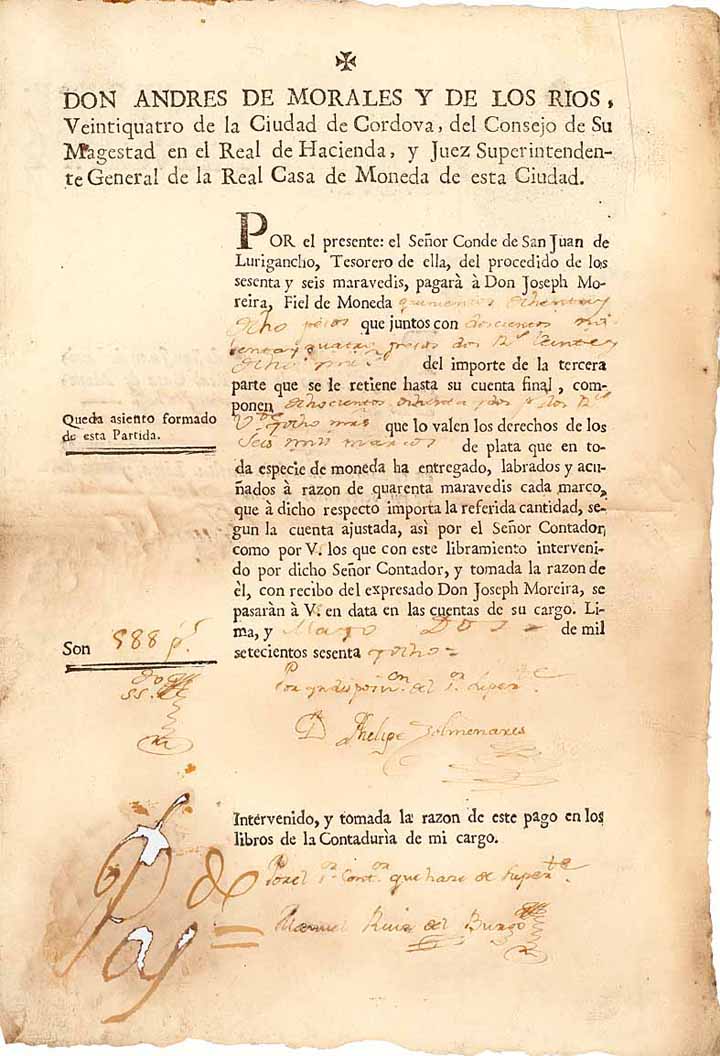 DON ANDRES DE MORALES Y DE LOS RIOS,
Veintiquatro de la Ciudad de Cordova, del Consejo de Su
Magestad en el Real de Hacienda, y Juez Superintenden-
te General de la Real Casa de Moneda de esta Ciudad.
POR el presente: el Señor Conde de San Juan de
Lurigancho, Tesorero de ella, del procedido de los
sesenta y seis maravedis, pagarà à Don Joseph Mo-
reira, Fiel de Moneda quinientos ochenta y
ocho pesos que juntos con doscientos no-
venta y quatro pesos dos Rs. veinte y
ocho mrs. del importe de la tercera
parte que se le retiene hasta su cuenta final, com-
ponen ochocientos ochenta y dos ps. dos Rs.
y ocho mrs. que lo valen los derechos de los
Seis mil marcos de plata que en to-
da especie de moneda ha entregado, labrados y acu-
ñados à razon de quarenta maravedis cada marco,
que à dicho respecto importa la referida cantidad, se-
gun la cuenta ajustada, asi por el Señor Contador,
como por V. los que con este libramiento interveni-
do por dicho Señor Contador, y tomada la razon de
èl, con recibo del expresado Don Joseph Moreira, se
pasaràn à V. en data en las cuentas de su cargo. Li-
ma, y Mayo Dos de mil
setecientos sesenta y ocho =
Queda asiento formado
de esta Partida.
Son 588 ps.
Por del Sor. Superte.
Dn. Phelipe Colmenares
Intervenido, y tomada la razon de este pago en los
libros de la Contadurìa de mi cargo.
Por el Sor. Contor. que hace de Superte.
Manuel Ruiz del Burgo
Pagdo